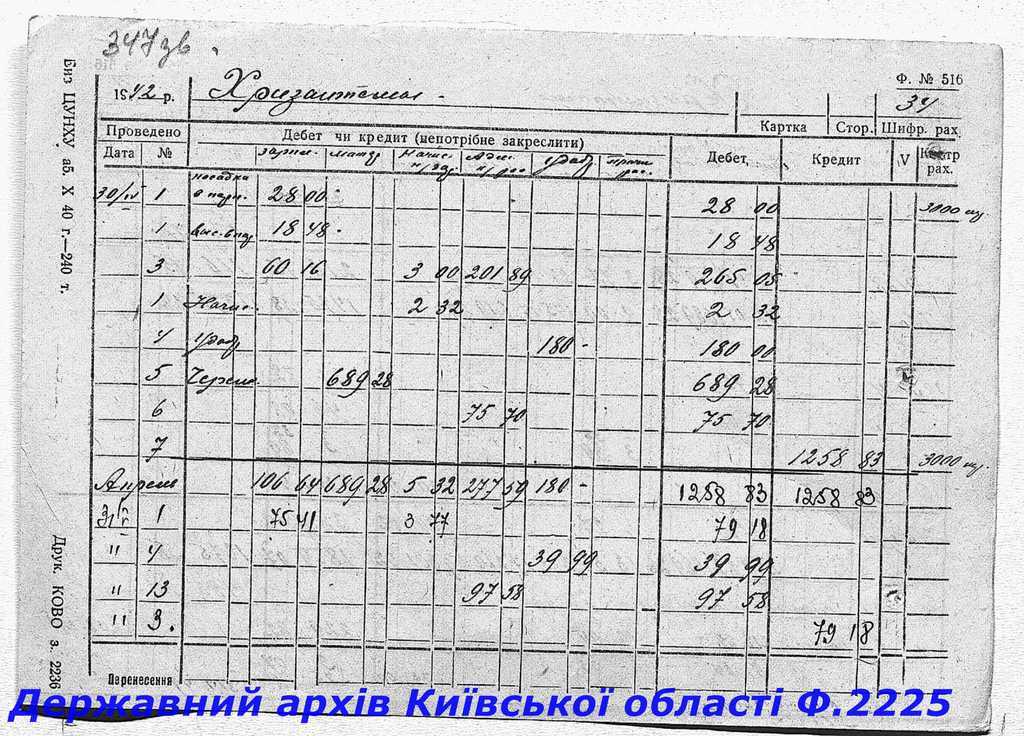 347зв.
Ф. № 516
1942 р. Хризантемая - 34
Картка Стор. Шифр. рах.
Проведено Дебет чи кредит (непотрібне закреслити) Дебет Кредит V Контр рах.
Дата №
30/IV 1 посадка 28 00 - 28 00 3000
1 18 48 - 18 48
3 60 16 3 00 201 89 265 05
1 Начис. 2 32 2 32
4 180 - 180 00
5 689 28 689 28
6 75 70 75 70
7 1258 83 3000
Апрель 106 64 689 28 5 32 277 59 180 - 1258 83 1258 83
31/V 1 75 41 3 77 79 18
" 4 39 99 39 99
" 13 97 58 97 58
" 3. 79 18
Перенесення
Виз ЦУНХУ аб. Х 40 г.—240 т.
Друк. КОВО з. 2236
Державний архів Київської області Ф.2225